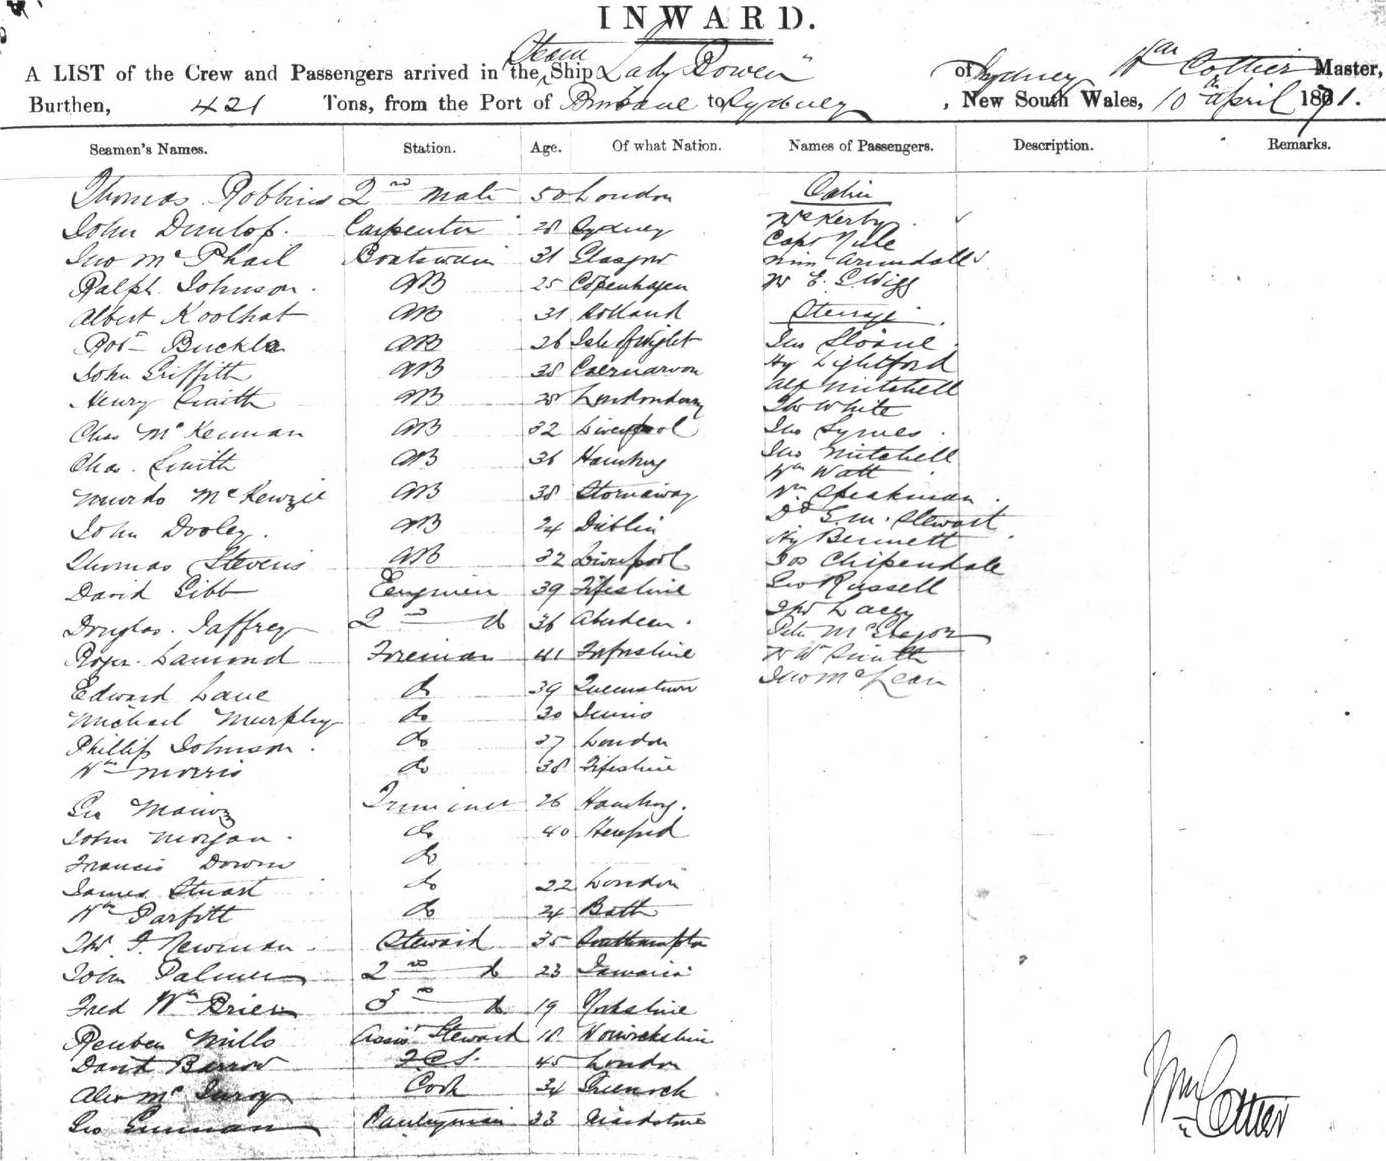 INWARD.
A LIST of the Crew and Passengers arrived in the Steam Ship "Lady Bowen" of Sydney Wm Cottier Master,
Burthen, 421 Tons, from the Port of Brisbane to Sydney, New South Wales, 10th April 1871.
Seamen's Names. Station. Age. Of what Nation. Names of Passengers. Description. Remarks.
Thomas Robbins 2nd Mate 50 London Cabin
John Dunlop. Carpenter 28 Sydney Mr Kerby
Jno McPhail Boatswain 31 Glasgow Capt
Ralph Johnson. AB 25 Copenhagen Miss Arundall
Albert Koolhat AB 31 Holland Mr E. G. Wigg
Robt Buckle AB 26 Isle of Wight Steerage
John Griffith AB 38 Caernarvon Jno Sloane
Henry Smith AB 28 Londonderry Hy Lightford
Chas McKennan AB 32 Liverpool Alf Mitchell
Chas. Smith AB 36 Hamburg Thos White
Murdo McKenzie AB 38 Stornaway Jno Symes.
John Dooley. AB 24 Dublin Jno Mitchell
Thomas Stevens AB 32 Liverpool Wm Watt
David Gibb Engineer 39 Fifeshire Wm Speakman.
Douglas. Jaffrey 2nd do 36 Aberdeen. Dd G. M. Stewart
Roger Lamond Fireman 41 Hy Bennett
Edward Lane do 39 Queenstown Jos Chipendale
Michael Murphy do 30 Geo Russell
Phillip Johnson. do 37 London Thos Lacey
Wm Morris do 38 Fifeshire Peter McGregor
Geo Trimmer 26 Hamburg. Mr Wm Smith
John Morgan. do 40 Hereford Jno McLean
Francis do
James Stuart do 22 London
Wm Parfitt do 24 Bath
Thos. J. Newman. Steward 35 Southampton
John Palmer 2nd do 23 Jamaica
Fred Wm Brier 3rd do 19 Yorkshire
Reuben Mills Assist Steward 18 Warwickshire
David Barrow F.C.S. 45 London
Alex Mc Cook 34 Greenock
Geo Pantryman 33 Maidstone
Wm Cottier